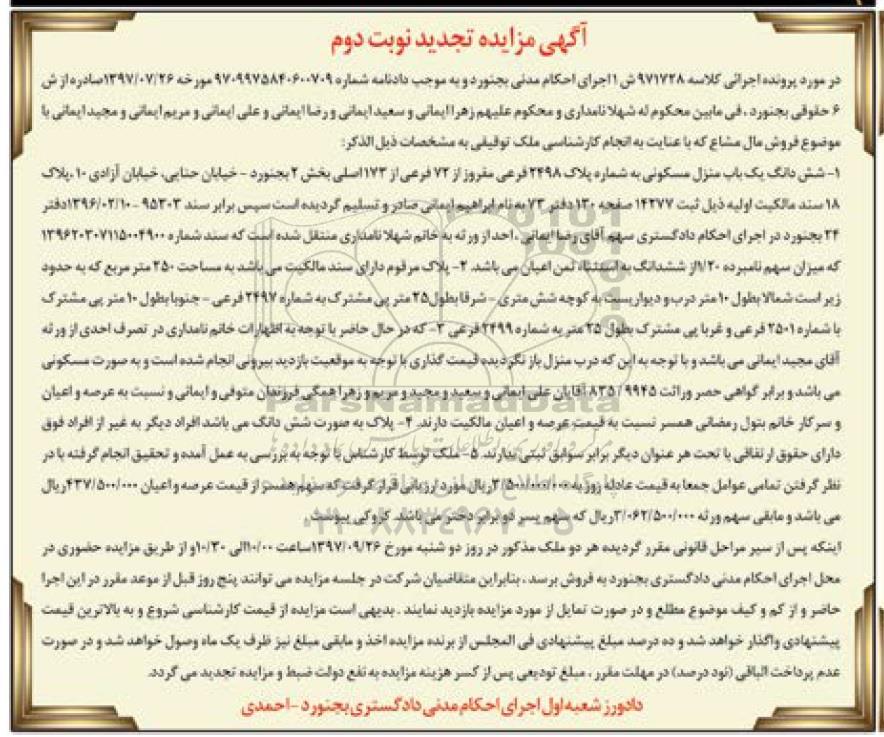 آگهی مزایده تجدید نوبت دوم
در مورد پرونده اجرائی کلاسه ۹۷۱۷۲۸ ش ۱ اجرای احکام مدنی بجنورد و به موجب دادنامه شماره ۹۷۰۹۹۷۵۸۴۰۶۰۰۷۰۹ مورخه ۱۳۹۷/۰۷/۲۶ صادره از ش
۶ حقوقی بجنورد ، فی مابین محکوم له شهلا نامداری و محکوم علیهم زهرا ایمانی و سعید ایمانی و رضا ایمانی و علی ایمانی و مریم ایمانی و مجید ایمانی با
موضوع فروش مال مشاع که با عنایت به انجام کارشناسی ملک توقیفی به مشخصات ذیل الذکر:
۱- شش دانگ یک باب منزل مسکونی به شماره پلاک ۲۴۹۸ فرعی مفروز از ۷۲ فرعی از ۱۷۳ اصلی بخش ۲ بجنورد - خیابان حنایی، خیابان آزادی ۱۰ ،پلاک
۱۸ سند مالکیت اولیه ذیل ثبت ۱۴۲۷۷ صفحه ۱۳۰ دفتر ۷۳ به نام ابراهیم ایمانی صادر و تسلیم گردیده است سپس برابر سند ۹۵۳۰۳ - ۱۳۹۶/۰۲/۱۰ دفتر
۲۴ بجنورد در اجرای احکام دادگستری سهم آقای رضا ایمانی ، احد از ورثه به خانم شهلا نامداری منتقل شده است که سند شماره ۱۳۹۶۲۰۳۰۷۱۱۵۰۰۴۹۰۰
که میزان سهم نامبرده ۱/۲۰ از ششدانگ به استثناء ثمن اعیان می باشد. ۲- پلاک مرقوم دارای سند مالکیت می باشد به مساحت ۲۵۰ متر مربع که به حدود
زیر است شمالا بطول ۱۰ متر درب و دیواریست به کوچه شش متری - شرقا بطول ۲۵ متر پی مشترک به شماره ۲۴۹۷ فرعی - جنوبا بطول ۱۰ متر پی مشترک
با شماره ۲۵۰۱ فرعی و غربا پی مشترک بطول ۲۵ متر به شماره ۲۴۹۹ فرعی ۳- که در حال حاضر با توجه به اظهارات خانم نامداری در تصرف احدی از ورثه
آقای مجید ایمانی می باشد و با توجه به این که درب منزل باز نگردیده قیمت گذاری با توجه به موقعیت بازدید بیرونی انجام شده است و به صورت مسکونی
می باشد و برابر گواهی حصر وراثت ۸۳۵۲/۹۹۴۵ آقایان علی ایمانی و سعید و مجید و مریم و زهرا همگی فرزندان متوفی و ایمانی و نسبت به عرصه و اعیان
و سرکار خانم بتول رمضانی همسر نسبت به قیمت عرصه و اعیان مالکیت دارند. ۴- پلاک به صورت شش دانگ می باشد افراد دیگر به غیر از افراد فوق
دارای حقوق ارتفاقی یا تحت هر عنوان دیگر برابر سوابق ثبتی ندارند. ۵- ملک توسط کارشناس با توجه به بررسی به عمل آمده و تحقیق انجام گرفته با در
نظر گرفتن تمامی عوامل جمعا به قیمت عادله روز به ۳/۵۰۰/۰۰۰/۰۰۰ ریال مورد ارزیابی قرار گرفت که سهم همسر از قیمت عرصه و اعیان ۴۳۷/۵۰۰/۰۰۰ ریال
می باشد و مابقی سهم ورثه ۳/۰۶۲/۵۰۰/۰۰۰ ریال که سهم پسر دو برابر دختر می باشد. کروکی پیوست.
اینکه پس از سیر مراحل قانونی مقرر گردیده هر دو ملک مذکور در روز دو شنبه مورخ ۱۳۹۷/۰۹/۲۶ ساعت ۱۰/۰۰ الی ۱۰/۳۰ و از طریق مزایده حضوری در
محل اجرای احکام مدنی دادگستری بجنورد به فروش برسد ، بنابراین متقاضیان شرکت در جلسه مزایده می توانند پنج روز قبل از موعد مقرر در این اجرا
حاضر و از کم و کیف موضوع مطلع و در صورت تمایل از مورد مزایده بازدید نمایند . بدیهی است مزایده از قیمت کارشناسی شروع و به بالاترین قیمت
پیشنهادی واگذار خواهد شد و ده درصد مبلغ پیشنهادی فی المجلس از برنده مزایده اخذ و مابقی مبلغ نیز ظرف یک ماه وصول خواهد شد و در صورت
عدم پرداخت الباقی (نود درصد) در مهلت مقرر ، مبلغ تودیعی پس از کسر هزینه مزایده به نفع دولت ضبط و مزایده تجدید می گردد.
دادورز شعبه اول اجرای احکام مدنی دادگستری بجنورد - احمدی
ParsNamadData